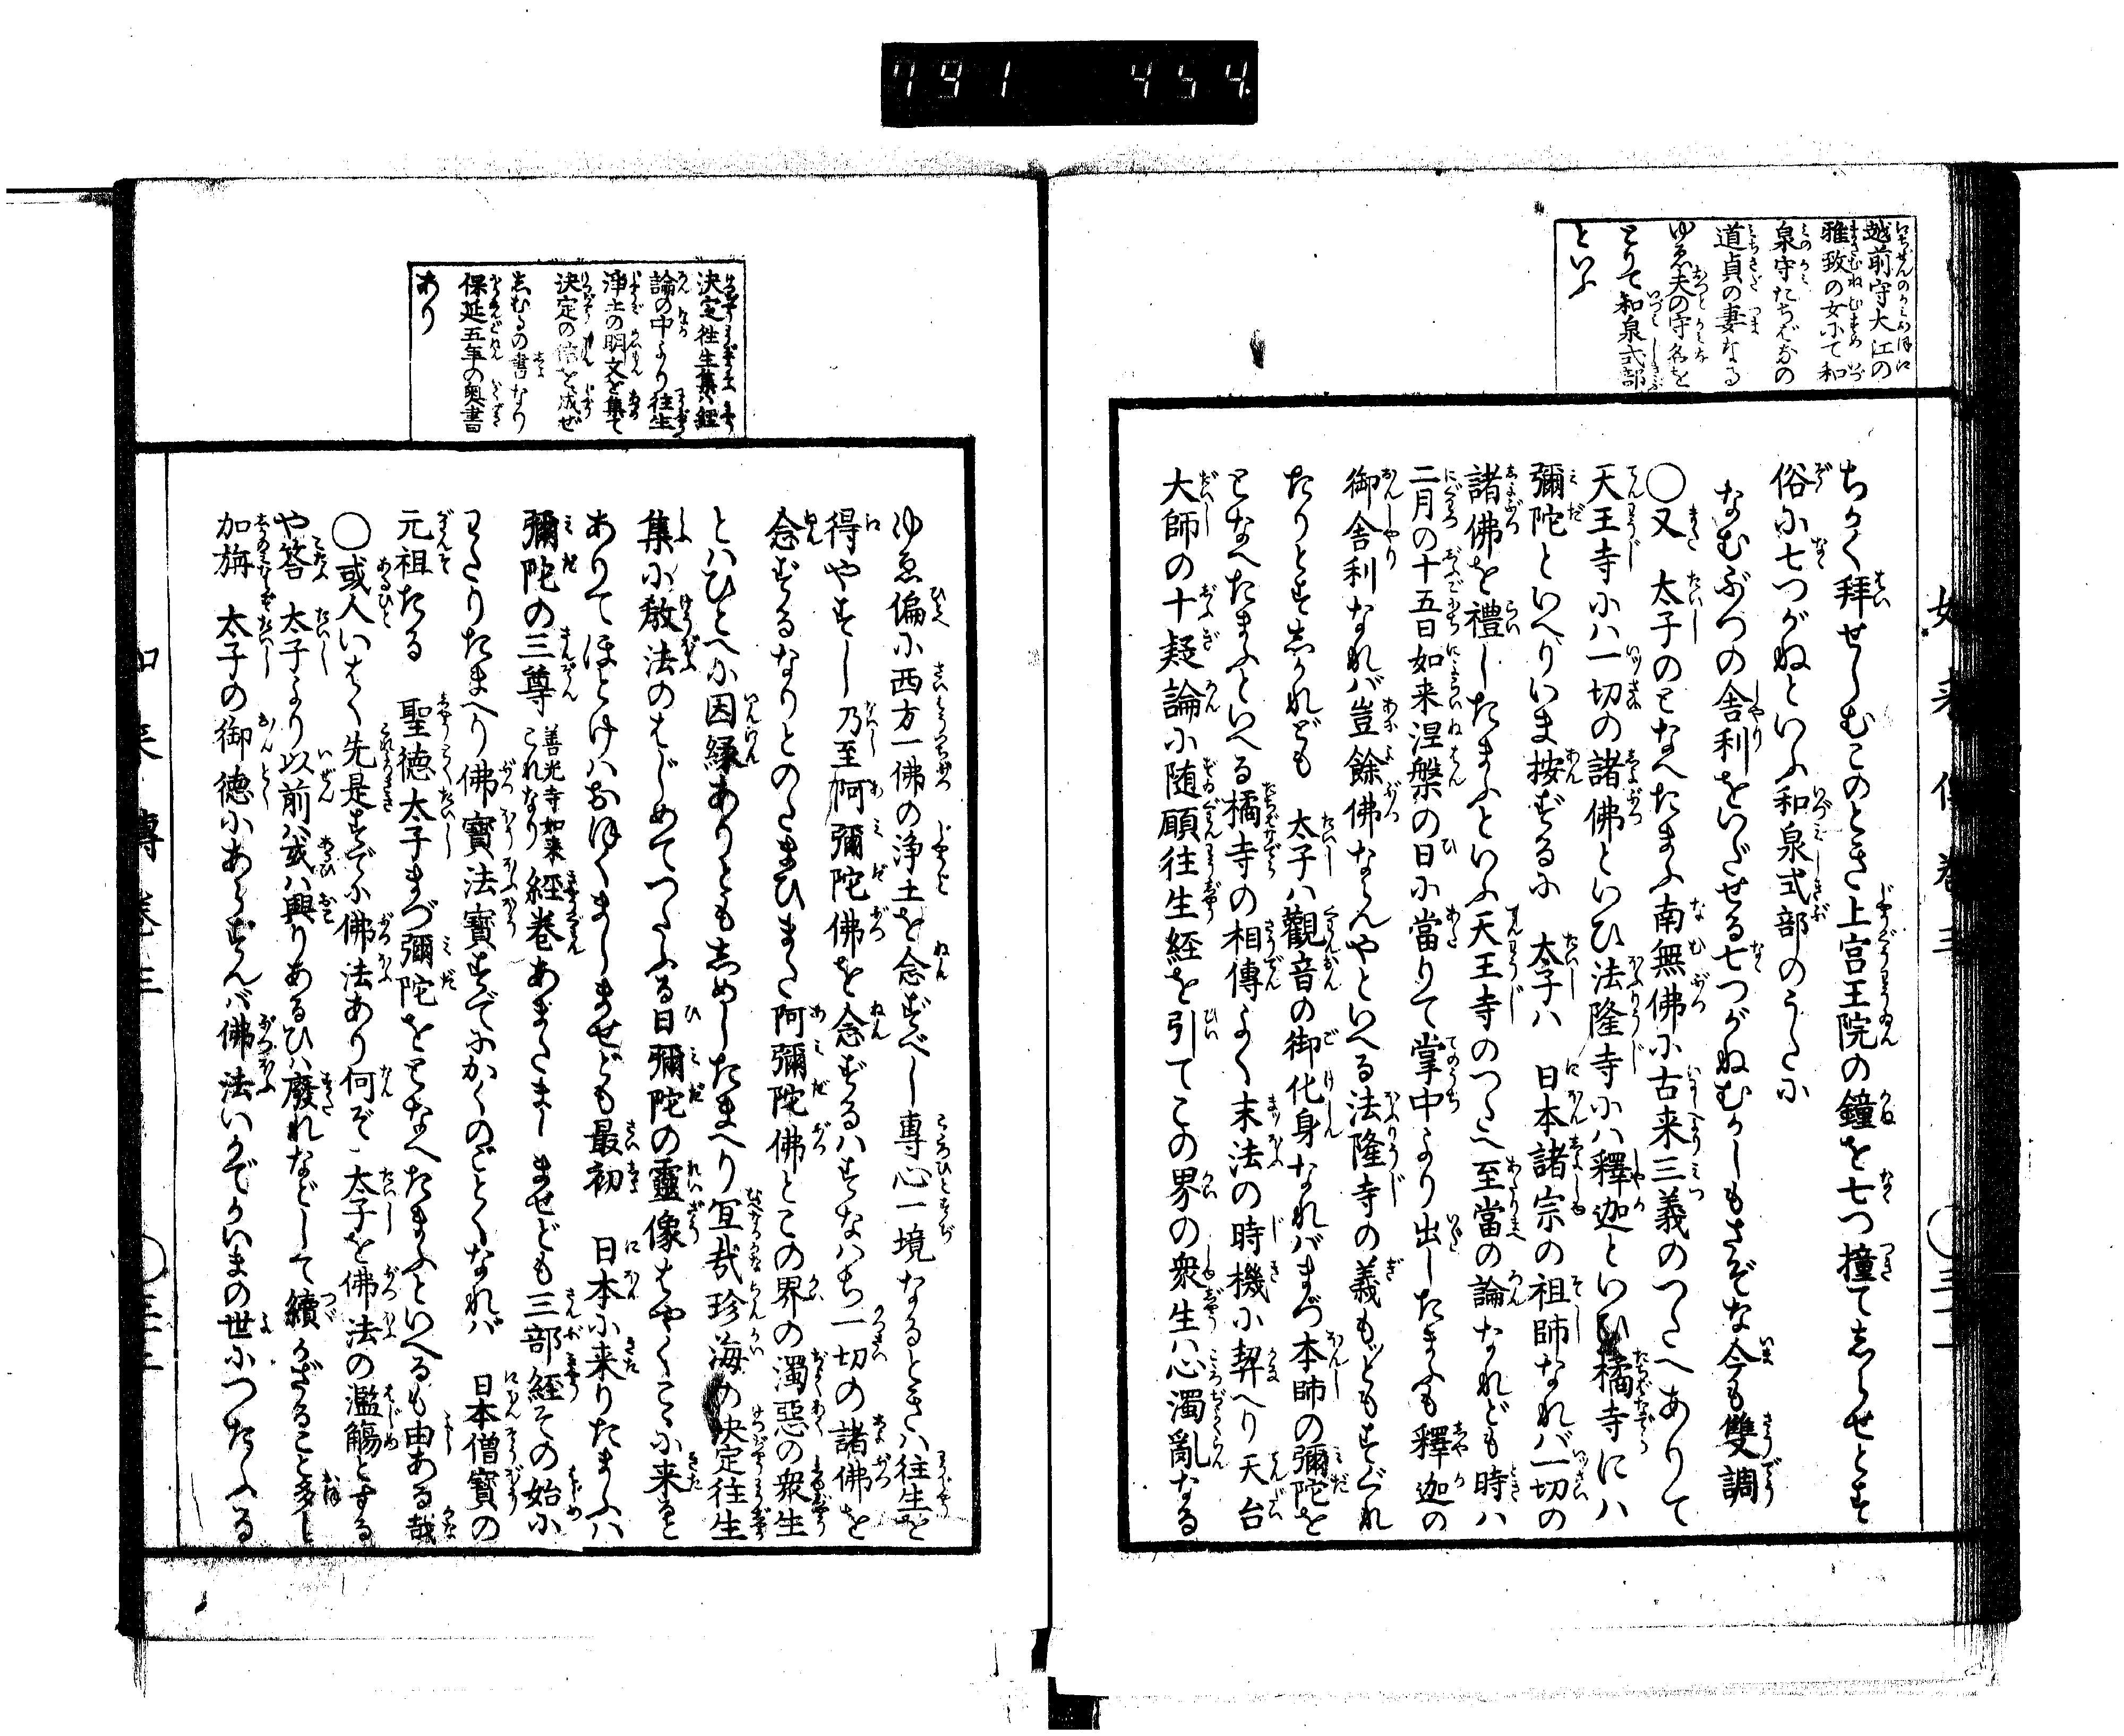 791 454
越前守大江の
雅致の女にて和
泉守たちばなの
道貞の妻なる
ゆゑ夫の守名を
とりて和泉式部
といふ
ちかく拝せしむこのとき上宮王院の鐘を七つ撞てしらせとす
俗に七つがねといふ和泉式部のうたに
なむぶつの舎利をいだせる七つがねむかしもさぞな今も雙調
〇又 太子のとなへたまふ南無佛に古来三義のつたへありて
天王寺にハ一切の諸佛といひ法隆寺にハ釋迦といひ橘寺にハ
彌陀といへりいま按ずるに 太子ハ 日本諸宗の祖師なれバ一切の
諸佛を禮したまふといふ天王寺のつたへ至當の論なれども時ハ
二月の十五日如来涅槃の日に當りて掌中より出したまふも釋迦の
御舎利なれバ豈餘佛ならんやといへる法隆寺の義もともすぐれ
たりとすしかれども 太子ハ觀音の御化身なれバまづ本師の彌陀を
となへたまふといへる橘寺の相傳よく末法の時機に契へり天台
大師の十疑論に随願往生経を引てこの界の衆生ハ心濁亂なる
決定往生集ハ經
論の中より往生
浄土の明文を集て
決定の信を成ぜ
しむるの書なり
保延五年の奥書
あり
ゆゑ偏に西方一佛の浄土を念ずべし專心一境なるときハ往生を
得やすし乃至阿彌陀佛を念ずるハすなハち一切の諸佛を
念ずるなりとのたまひまた阿彌陀佛とこの界の濁惡の衆生
とハひとへに因縁ありとも志めしたまへり宜哉珍海の決定往生
集に教法のはじめてつたふる日彌陀の靈像はやくこゝに来ると
ありてほとけハおほくましませども最初 日本に来りたまふハ
彌陀の三尊 善光寺如来これなり 経巻あまたましませども三部経その始に
わたりたまへり佛寳法寳すでにかくのごとくなれバ 日本僧寳の
元祖たる 聖徳太子まづ彌陀をとなへたまふといへるも由ある哉
〇或人いはく先是すでに佛法あり何ぞ 太子を佛法の濫觴とする
や答 太子より以前ハ或ハ興りあるひハ廢れなどして續かざること多し
加旃 太子の御徳にあらずんバ佛法いかでかいまの世につたふる